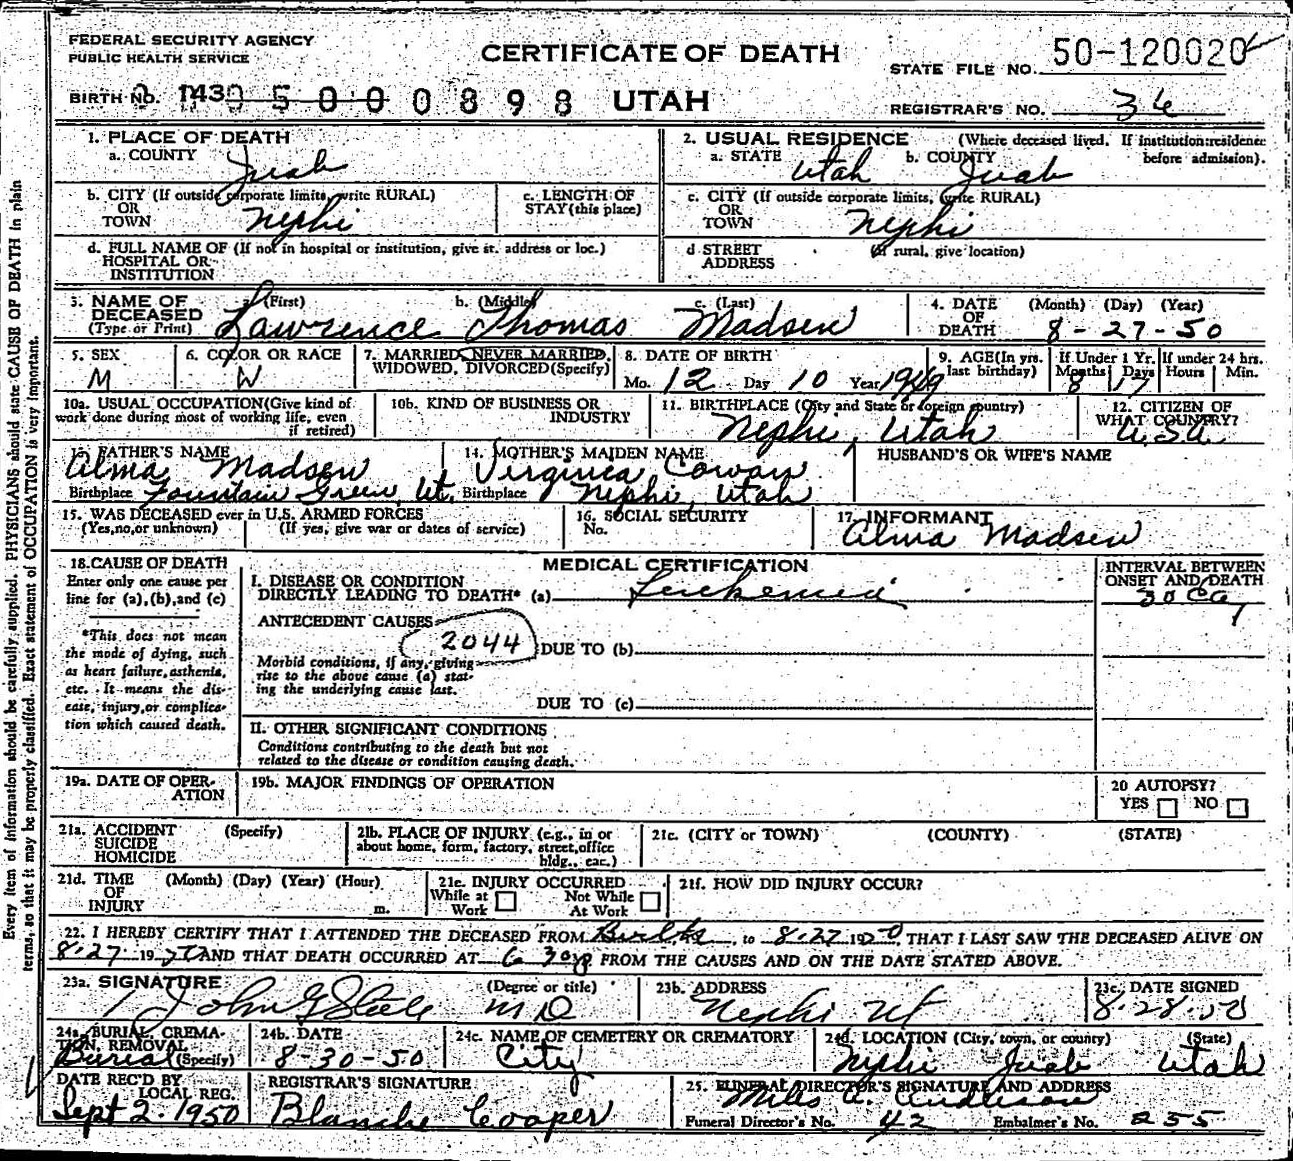 FEDERAL SECURITY AGENCY
PUBLIC HEALTH SERVICE
CERTIFICATE OF DEATH
UTAH
STATE FILE NO. 50-120020
BIRTH NO. 143 0 5 0 0 0 8 9 8
REGISTRAR'S NO. 36
Every item of information should be carefully supplied. PHYSICIANS should state CAUSE OF DEATH in plain
terms, so that it may be properly classified. Exact statement of OCCUPATION is very important.
1. PLACE OF DEATH
a. COUNTY Juab
2. USUAL RESIDENCE (Where deceased lived. If institution: residence
before admission).
a. STATE Utah b. COUNTY Juab
b. CITY (If outside corporate limits, write RURAL)
OR
TOWN Nephi
c. LENGTH OF
STAY (this place)
c. CITY (If outside corporate limits, write RURAL)
OR
TOWN Nephi
d. FULL NAME OF (If not in hospital or institution, give st. address or loc.)
HOSPITAL OR
INSTITUTION
d STREET (If rural, give location)
ADDRESS
3. NAME OF DECEASED (Type or Print)
a. (First) b. (Middle) c. (Last)
Lawrence Thomas Madsen
4. DATE OF DEATH (Month) (Day) (Year)
8-27-50
5. SEX
M
6. COLOR OR RACE
W
7. MARRIED, NEVER MARRIED,
WIDOWED, DIVORCED (Specify)
8. DATE OF BIRTH
Mo. 12 Day 10 Year 1949
9. AGE (In yrs. last birthday)
If Under 1 Yr. Months Days
8 17
If under 24 hrs. Hours Min.
10a. USUAL OCCUPATION (Give kind of
work done during most of working life, even
if retired)
10b. KIND OF BUSINESS OR
INDUSTRY
11. BIRTHPLACE (City and State or foreign country)
Nephi, Utah
12. CITIZEN OF
WHAT COUNTRY?
U.S.A.
13. FATHER'S NAME
Alma Madsen
Birthplace Fountain Green, Ut.
14. MOTHER'S MAIDEN NAME
Virginia Cowan
Birthplace Nephi, Utah
HUSBAND'S OR WIFE'S NAME
15. WAS DECEASED ever in U.S. ARMED FORCES
(Yes, no, or unknown) (If yes, give war or dates of service)
16. SOCIAL SECURITY
No.
17. INFORMANT
Alma Madsen
18. CAUSE OF DEATH
Enter only one cause per
line for (a), (b), and (c)
*This does not mean
the mode of dying, such
as heart failure, asthenia,
etc. It means the dis-
ease, injury, or complica-
tion which caused death.
MEDICAL CERTIFICATION
I. DISEASE OR CONDITION
DIRECTLY LEADING TO DEATH* (a) Leukemia
ANTECEDENT CAUSES
2044
DUE TO (b)
Morbid conditions, if any, giving
rise to the above cause (a) stat-
ing the underlying cause last.
DUE TO (c)
II. OTHER SIGNIFICANT CONDITIONS
Conditions contributing to the death but not
related to the disease or condition causing death.
INTERVAL BETWEEN
ONSET AND DEATH
19a. DATE OF OPER-
ATION
19b. MAJOR FINDINGS OF OPERATION
20 AUTOPSY?
YES NO
21a. ACCIDENT (Specify)
SUICIDE
HOMICIDE
21b. PLACE OF INJURY (e.g., in or
about home, form, factory, street, office
bldg., eac.)
21c. (CITY or TOWN) (COUNTY) (STATE)
21d. TIME (Month) (Day) (Year) (Hour)
OF
INJURY m.
21e. INJURY OCCURRED
While at Work Not While At Work
21f. HOW DID INJURY OCCUR?
22. I HEREBY CERTIFY THAT I ATTENDED THE DECEASED FROM Birth, to 8-27 1950 THAT I LAST SAW THE DECEASED ALIVE ON
8-27 1950 AND THAT DEATH OCCURRED AT 6 30 p FROM THE CAUSES AND ON THE DATE STATED ABOVE.
23a. SIGNATURE (Degree or title)
John G Steele M D
23b. ADDRESS
Nephi Ut
23c. DATE SIGNED
8-28-50
24a. BURIAL, CREMA-
TION, REMOVAL
Burial (Specify)
24b. DATE
8-30-50
24c. NAME OF CEMETERY OR CREMATORY
City
24d. LOCATION (City, town, or county) (State)
Nephi Juab Utah
DATE REC'D BY
LOCAL REG.
Sept 2, 1950
REGISTRAR'S SIGNATURE
Blanche Cooper
25. FUNERAL DIRECTOR'S SIGNATURE AND ADDRESS
Miles A. Anderson
Funeral Director's No. 42 Embalmer's No. 255